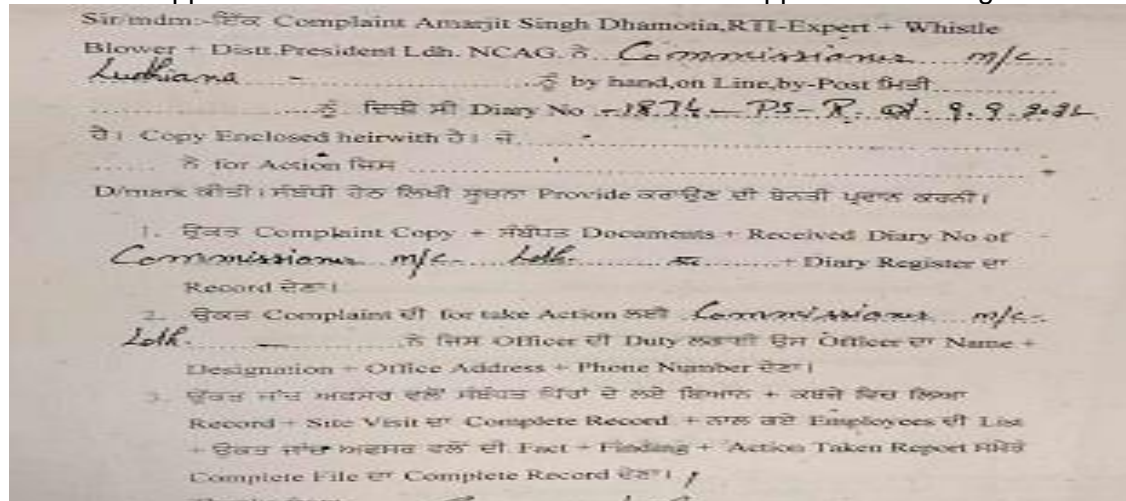 Sir/mdm:-ਇੱਕ Complaint Amarjit Singh Dhamotia,RTI-Expert + Whistle
Blower + Distt.President Ldh. NCAG. ਨੇ Commissioner m/c
Ludhiana ਨੂੰ by hand,on Line,by-Post ਮਿਤੀ
ਨੂੰ ਦਿਤੀ ਸੀ Diary No - PS-R. dt. 9.9.
ਹੈ। Copy Enclosed heirwith ਹੈ। ਜੋ
ਨੇ for Action ਜਿਸ
D/mark ਕੀਤੀ। ਸੰਬੰਧੀ ਹੇਠ ਲਿਖੀ ਸੂਚਨਾ Provide ਕਰਾਉਣ ਦੀ ਬੇਨਤੀ ਪ੍ਰਵਾਨ ਕਰਨੀ।
1. ਉਕਤ Complaint Copy + ਸੰਬੰਧਤ Documents + Received Diary No of
Commissioner m/c Ldh. + Diary Register ਦਾ
Record ਦੇਣਾ।
2. ਉਕਤ Complaint ਦੀ for take Action ਲਈ Commissioner m/c
Ldh. ਨੇ ਜਿਸ Officer ਦੀ Duty ਲਗਾਈ ਉਸ Officer ਦਾ Name +
Designation + Office Address + Phone Number ਦੇਣਾ।
3. ਉਕਤ ਜਾਂਚ ਅਫਸਰ ਵਲੋਂ ਸੰਬੰਧਤ ਧਿਰਾਂ ਦੇ ਲਏ ਬਿਆਨ + ਕਬਜੇ ਵਿਚ ਲਿਆ
Record + Site Visit ਦਾ Complete Record + ਨਾਲ ਗਏ Employees ਦੀ List
+ ਉਕਤ ਜਾਂਚ ਅਫਸਰ ਵਲੋਂ ਦੀ Fact + Finding + Action Taken Report ਸਮੇਤ
Complete File ਦਾ Complete Record ਦੇਣਾ।